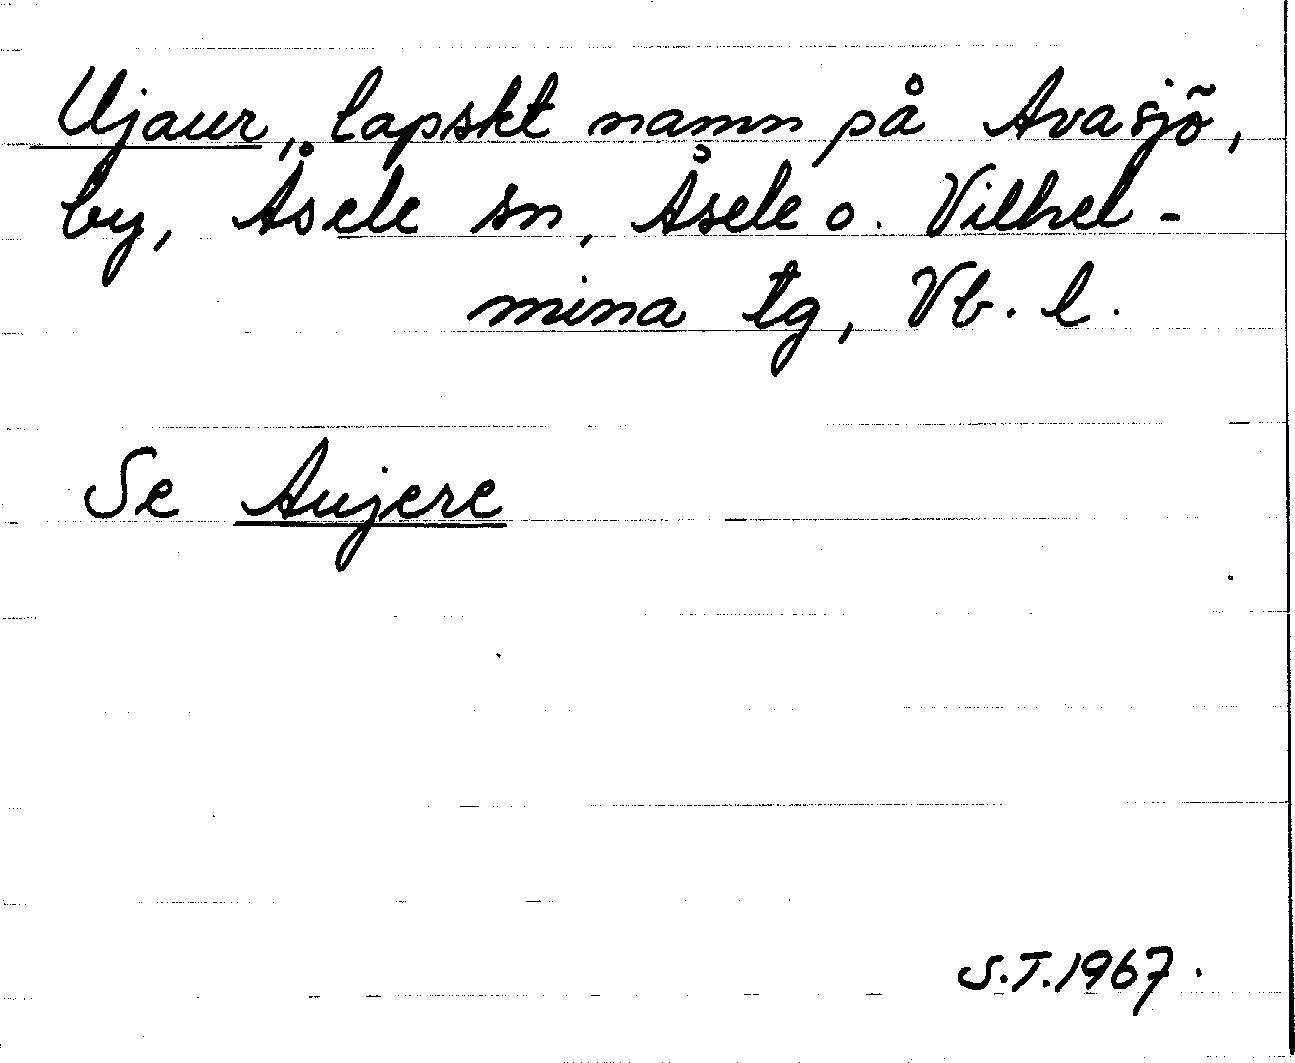 Ujaur, lapskt namn på Avasjö,
by, Åsele sn, Åsele o. Vilhel-
mina tg, Vb. l.
Se Aujere
S.T. 1967.